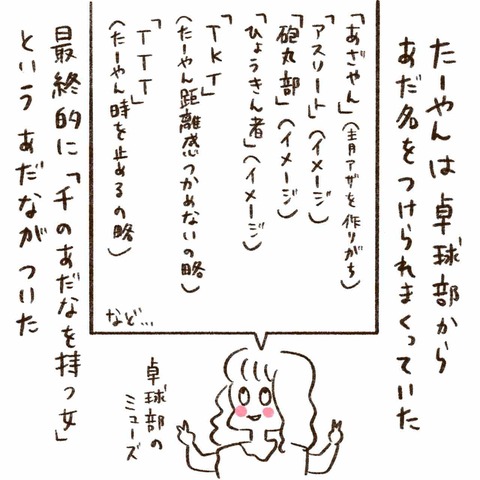 たーやんは卓球部から
あだ名をつけられまくっていた
「あざやん」(青アザを作りがち)
「アスリート」(イメージ)
「砲丸部」(イメージ)
「ひょうきん者」(イメージ)
「TKT」
(たーやん距離感つかめないの略)
「TTT」
(たーやん時を止めるの略)
など…
卓球部の
ミューズ
最終的に「千のあだなを持つ女」
というあだながついた